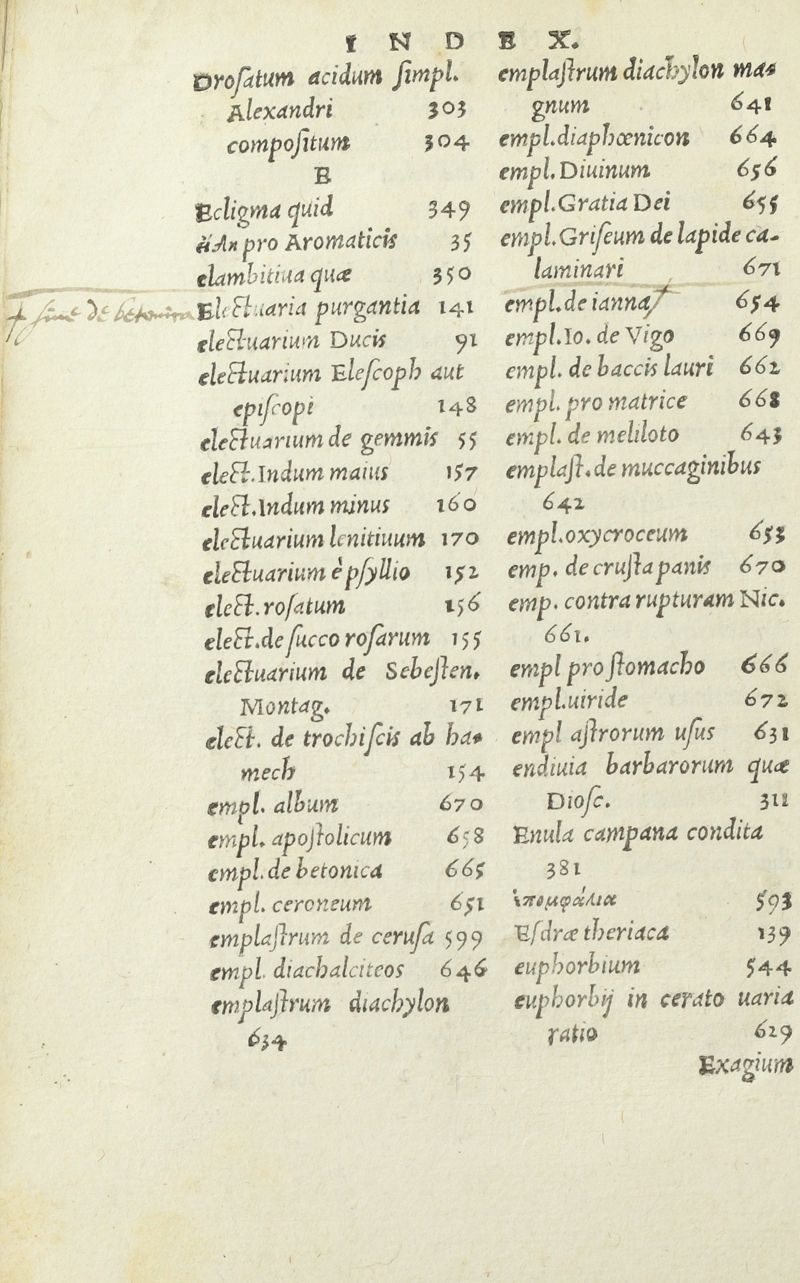 INDEX.
Drosatum acidum simpl.
Alexandri 303
compositum 304
E
Ecligma quid 349
pro Aromaticis 35
elambitiua quæ 350
Electuaria purgantia 141
electuarium Ducis 91
electuarium Elescoph aut
episcopi 148
electuarium de gemmis 55
elect.Indum maius 157
elect.Indum minus 160
electuarium lenitiuum 170
electuarium è psyllio 152
elect.rosatum 156
elect.de succo rosarum 155
electuarium de Sebesten.
Montag. 171
elect. de trochiscis ab ha-
mech 154
empl. album 670
empl. apostolicum 658
empl.de betonica 665
empl. ceroneum 651
emplastrum de cerusa 599
empl. diachalciteos 646
emplastrum diachylon
634
✝ siue de betonica
emplastrum diachylon ma-
gnum 641
empl.diaphœnicon 664
empl.Diuinum 656
empl.Gratia Dei 655
empl.Griseum de lapide ca-
laminari 671
empl.de ianna✝ 654
empl.Io. de Vigo 669
empl. de baccis lauri 662
empl. pro matrice 668
empl. de meliloto 643
emplast.de muccaginibus
642
empl.oxycroceum 653
emp. de crusta panis 670
emp. contra rupturam Nic.
661.
empl pro stomacho 666
empl.uiride 672
empl astrorum usus 631
endiuia barbarorum quæ
Diosc. 311
Enula campana condita
381
593
Esdræ theriaca 139
euphorbium 544
euphorbij in cerato uaria
ratio 629
Exagium